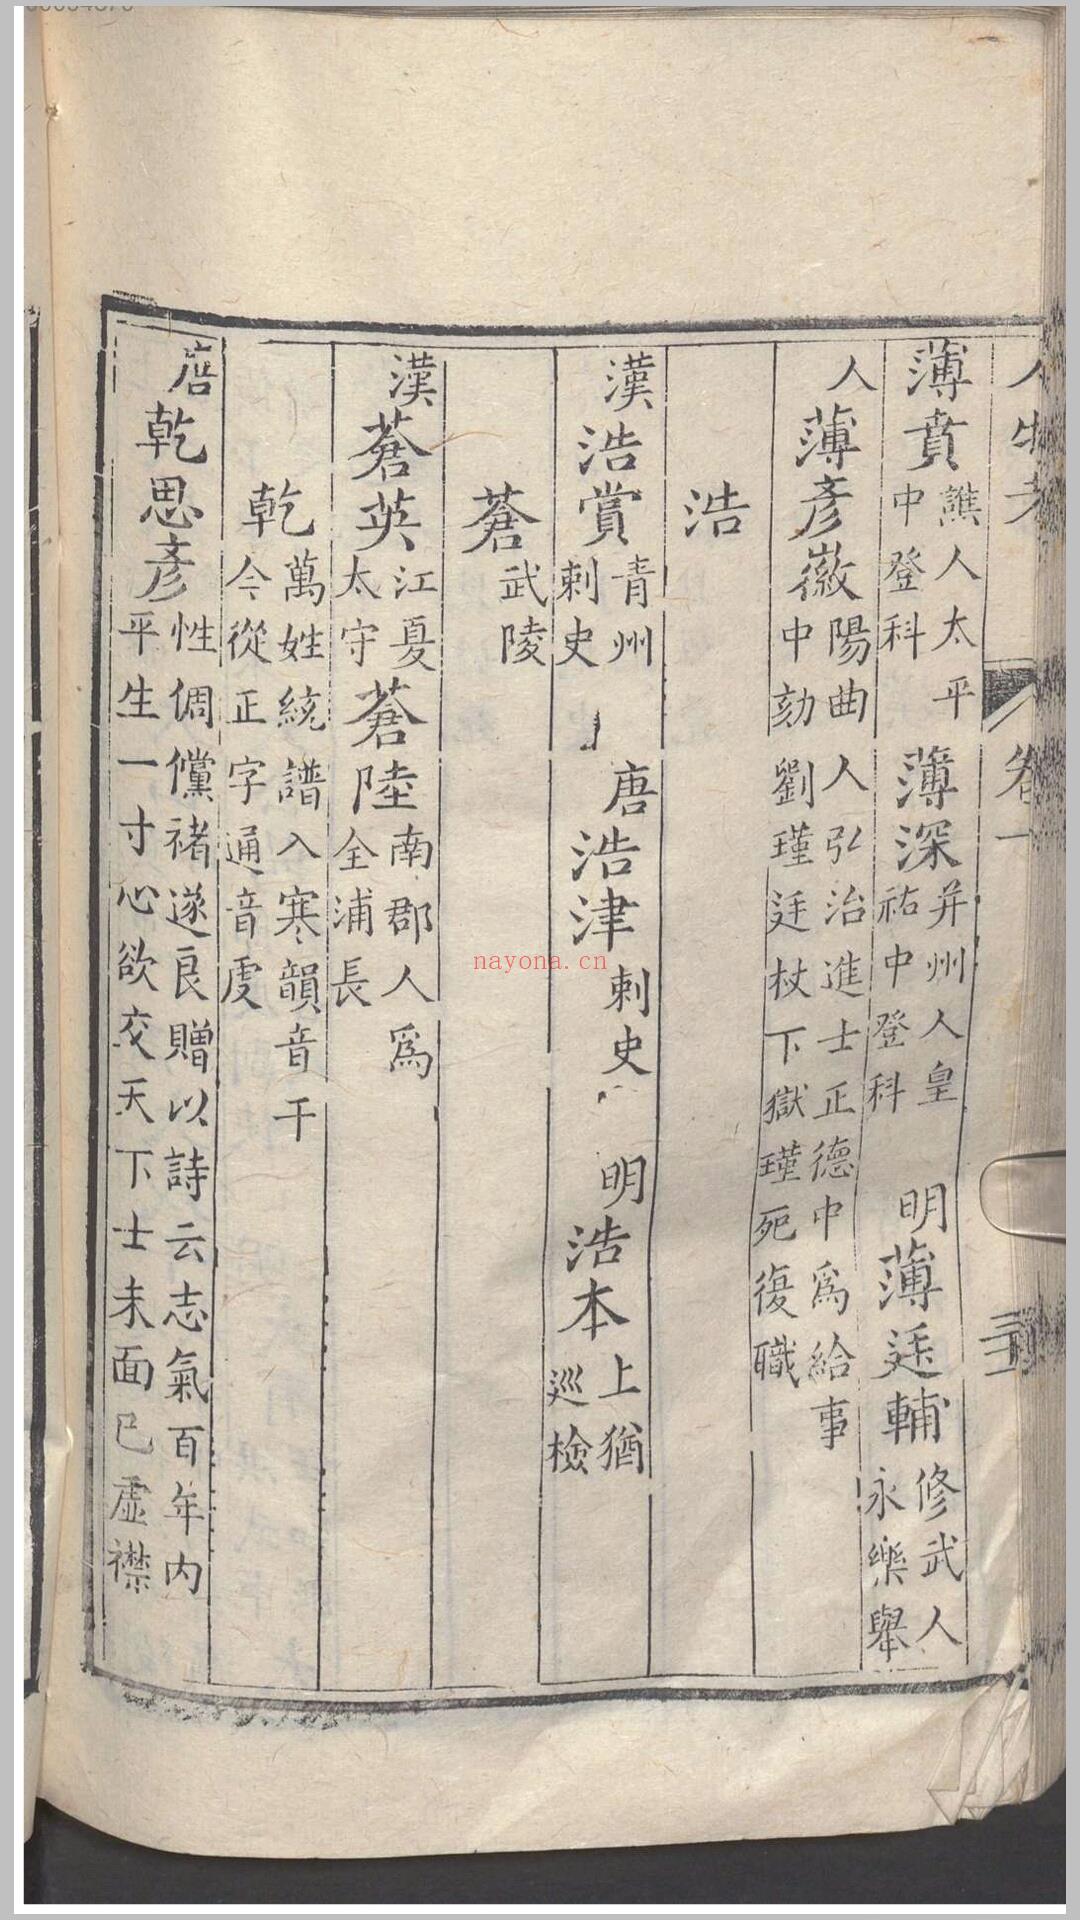 人物考 卷一
薄賁 譙人太平中登科 薄深 并州人皇祐中登科 明 薄廷輔 修武人永樂舉
人 薄彥徽 陽曲人弘治進士正德中爲給事中劾劉瑾廷杖下獄瑾死復職
浩
漢 浩賞 青州刺史 唐 浩津 刺史 明 浩本 上猶巡檢
蒼 武陵
漢 蒼英 江夏太守 蒼陸 南郡人爲全浦長
乾 萬姓統譜入寒韻音干今從正字通音虔
唐 乾思彥 性倜儻褚遂良贈以詩云志氣百年內平生一寸心欲交天下士未面已虛襟
nayona.cn